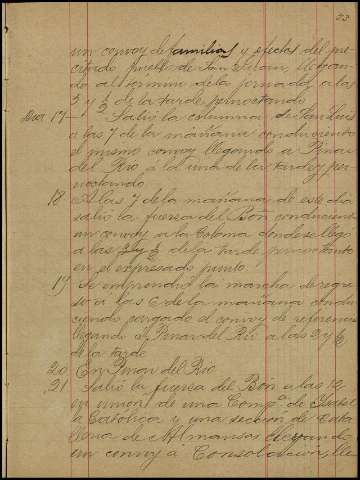 23
un convoy de familias y efectos del pre
citado pueblo de San Juan, llegan
do al termino de la jornada a las
5 y ½ de la tarde pernoctando
Dbre 17 — Salió la columna de San Luis
a las 7 de la mañana conduciendo
el mismo convoy llegando a Pinar
del Rio á la una de la tarde y per
noctando
18 A las 7 de la mañana de este dia
salió la fuerza del Bón conduciendo
un convoy a la Coloma donde se llegó
a las y ½ de la tarde pernoctando
en el expresado punto
19 Se emprendió la marcha de regre
so a las 6 de la mañana condu
ciendo cargado el convoy de referencia
llegando á Pinar del Rio a las 2 y ½
de la tarde
20 En Pinar del Rio
21 Salió la fuerza del Bón a las 12
en union de una Compª de Isabel
la Católica y una sección de Caba
lleria de Almansa llevando
un convoy á Consolación, lle